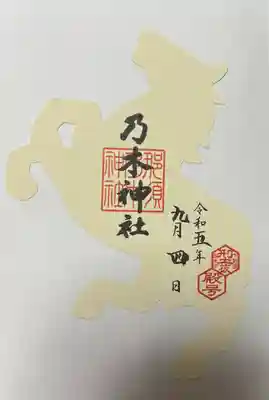 乃木神社
那須
神社
令和五年
九月四日
殿号